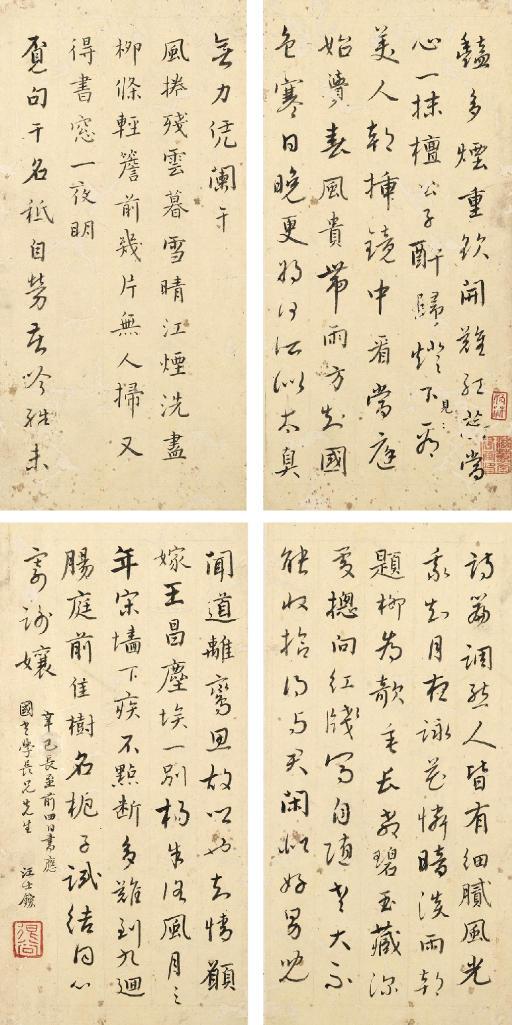 艷多煙重欲開難紅蕊當
心一抹檀公子醉歸燈下見
美人朝插鏡中看當庭
始覺春風貴帶雨方知國
色寒日晚更將何所似太真
無力凭闌干
風捲殘雲暮雪晴江煙洗盡
柳條輕簷前幾片無人掃又
得書窓一夜明
覓句干名秪自勞苦吟殊未
詩篇調態人皆有細膩風光
我知月夜詠花憐暗淡雨朝
題柳為欹垂長教碧玉藏深
處摠向紅牋寫自隨老大不
能收拾得與君閑似好男兒
聞道離鸞思故鄉也知情願
嫁王昌塵埃一別楊朱路風月三
年宋墻下疾不點斷多難到九迴
腸庭前佳樹名梔子試結同心
寄謝孃
辛巳長至前四日書應
國學長兄先生 汪士鋐